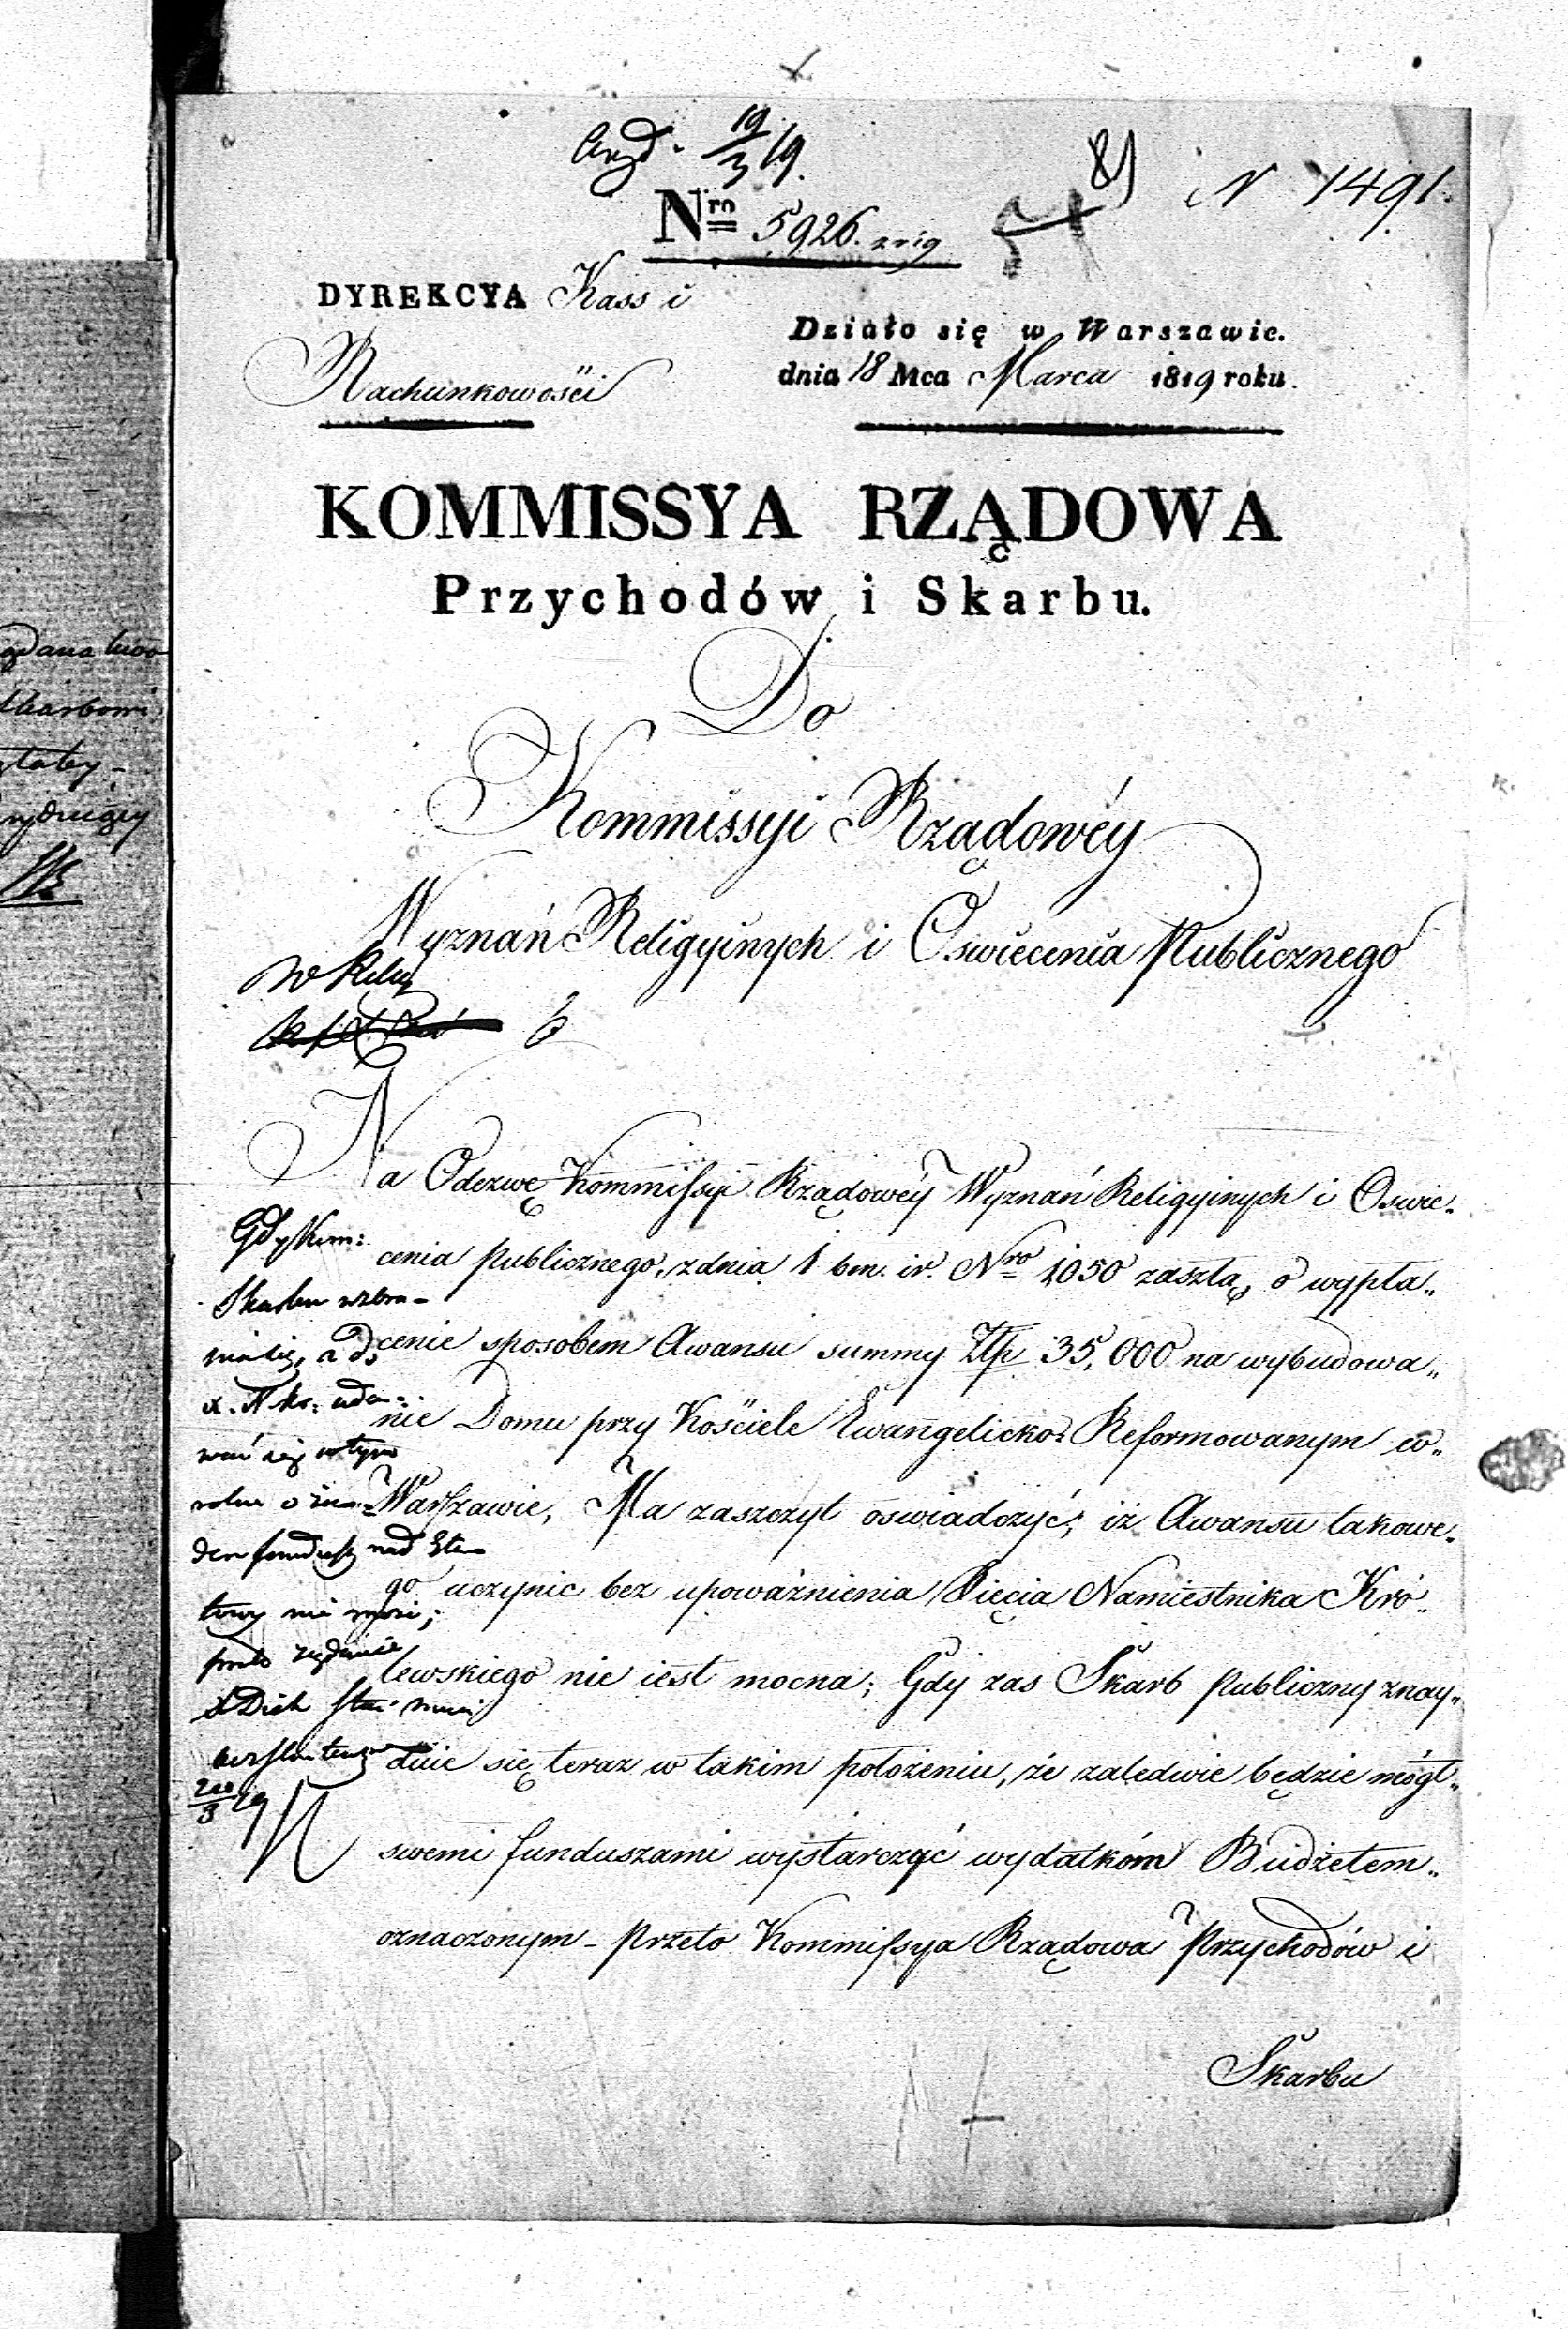 19/3 19.
81
N 1491.
Nro 5926. 
DYREKCYA Kass i
Rachunkowości
Działo się w Warszawie.
dnia 18 Mca Marca 1819 roku.
KOMMISSYA RZĄDOWA
Przychodów i Skarbu.
Do
Kommissyi Rządowéy
Wyznań Religyinych i Oswiecenia Publicznego
Na Odezwę Kommissyi Rządowéy Wyznań Religyinych i Oswie„
cenia publicznego, z dnia 1 bm. ir. Nro 1050 zaszłą, o wypła„
cenie sposobem Awansu summy Złp 35,000 na wybudowa„
nie Domu przy Kościele Ewangelicko-Reformowanym w„
Warszawie, Ma zaszczyt oswiadczyć, iż Awansu takowe„
go uczynic bez upoważnienia Xięcia Namiestnika Kró„
lewskiego nie iest mocna; Gdy zas Skarb publiczny znay„
duie się teraz w takim położeniu, że zaledwie będzie mógł„
swemi funduszami wystarczyć wydatkóm Budżetem„
oznaczonym - przeto Kommissya Rządowa Przychodów i
Skarbu
Gdy Kom:
Skarbu wzbra-
nia się, a do
X. Nks: uda-
wać się w tym
fundusz nad Eta-
towy nie